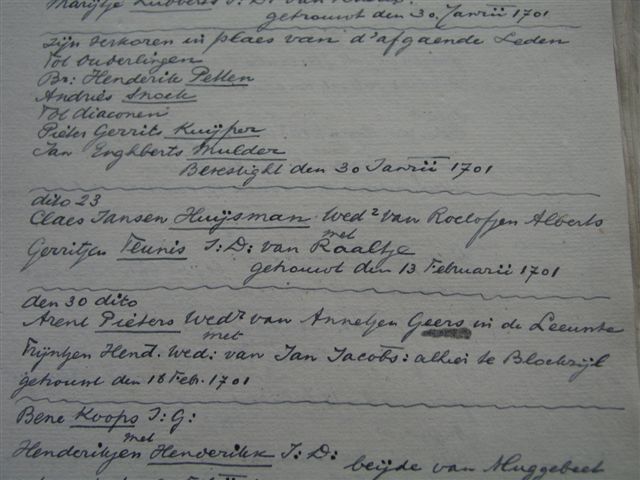 Marijtje Lubberts J: D: van
getrouwt den 30 Janrii 1701
zijn verkoren in plaes van d'afgaende Leden
Tot ouderlingen
Br: Henderik Petten
Andries Snoek
Tot diaconen
Pieter Gerrits Kuijper
Jan Enghberts Mulder
Bevestight den 30 Janrii 1701
dito 23
Claes Jansen Huijsman Wedr van Roelofjen Alberts
met
Gerritjen Teunis J: D: van Raaltje
getrouwt den 13 Februarii 1701
den 30 dito
Arent Pieters Wedr van Annetjen Geers in de Leeunte
met
Trijntjen Hend. Wed: van Jan Jacobs: alhier te Blockzijl
getrouwt den 18 Febr. 1701
Bene Koops J: G:
met
Henderikjen Henderikx J: D:
beijde van Muggebeet